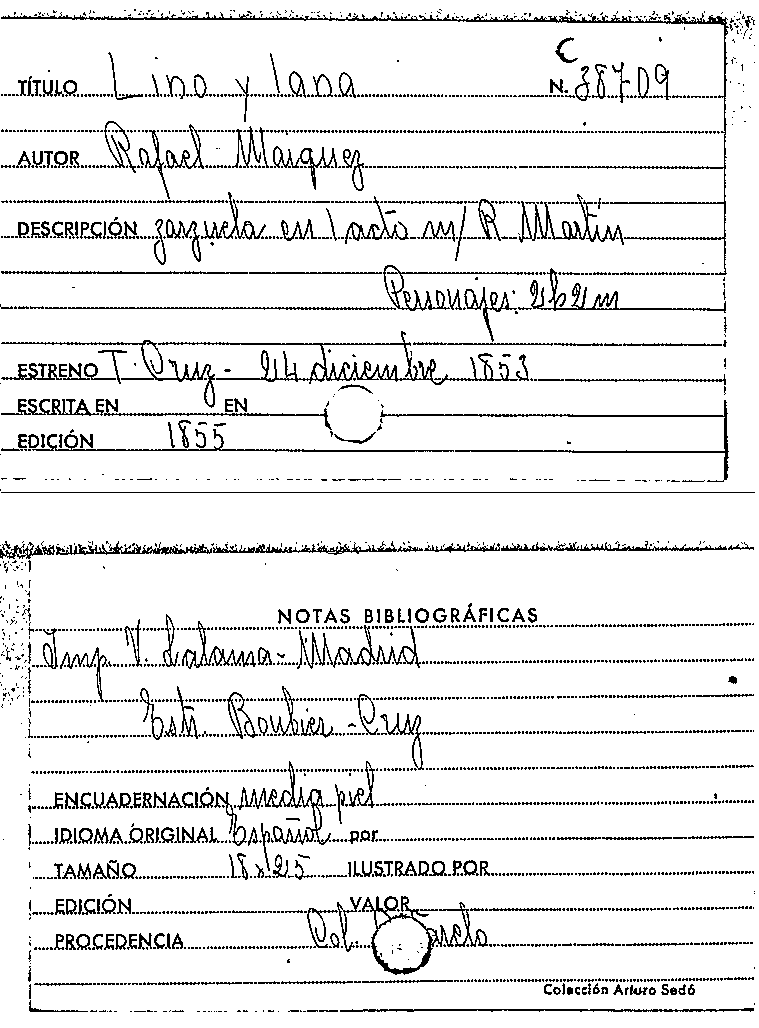 C
TÍTULO Lino y lana N. 38709
AUTOR Rafael Maiquez
DESCRIPCIÓN zarzuela en 1 acto m/ R Martín
Personajes: 2h2m
ESTRENO T. Cruz - 24 diciembre 1853
ESCRITA EN EN
EDICIÓN 1855
NOTAS BIBLIOGRÁFICAS
Imp V. Lalama - Madrid
Estr. - Cruz
ENCUADERNACIÓN media piel
IDIOMA ORIGINAL Español por
TAMAÑO 18x25 ILUSTRADO POR
EDICIÓN VALOR
PROCEDENCIA Col.
Colección Arturo Sedó